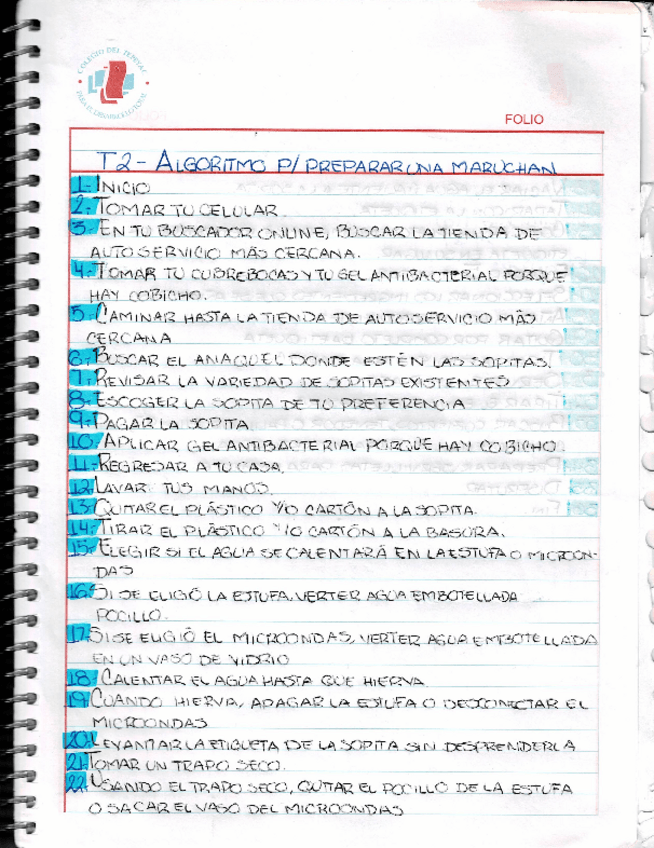 COLEGIO DEL TEPEYAC
FOLIO
T2- ALGORITMO P/ PREPARAR UNA MARUCHAN
1- INICIO
2- TOMAR TU CELULAR
3- EN TU BUSCADOR ONLINE, BUSCAR LA TIENDA DE
AUTOSERVICIO MÁS CERCANA.
4- TOMAR TU CUBREBOCAS Y TU GEL ANTIBACTERIAL PORQUE
HAY COBICHO.
5- CAMINAR HASTA LA TIENDA DE AUTOSERVICIO MÁS
CERCANA
6- BUSCAR EL ANAQUEL DONDE ESTÉN LAS SOPITAS.
7- REVISAR LA VARIEDAD DE SOPITAS EXISTENTES
8- ESCOGER LA SOPITA DE TU PREFERENCIA
9- PAGAR LA SOPITA
10- APLICAR GEL ANTIBACTERIAL PORQUE HAY COBICHO.
11- REGRESAR A TU CASA.
12- LAVAR TUS MANOS.
13- QUITAR EL PLÁSTICO Y/O CARTÓN A LA SOPITA.
14- TIRAR EL PLÁSTICO Y/O CARTÓN A LA BASURA.
15- ELEGIR SI EL AGUA SE CALENTARÁ EN LA ESTUFA O MICROON-
DAS
16- SI SE ELIGÓ LA ESTUFA, VERTER AGUA EMBOTELLADA
POCILLO.
17- SI SE ELIGIÓ EL MICROONDAS, VERTER AGUA EMBOTELLADA
EN UN VASO DE VIDRIO
18- CALENTAR EL AGUA HASTA QUE HIERVA
19- CUANDO HIERVA, APAGAR LA ESTUFA O DESCONECTAR EL
MICROONDAS
20- LEVANTAR LA ETIQUETA DE LA SOPITA SIN DESPRENDERLA
21- TOMAR UN TRAPO SECO.
22- USANDO EL TRAPO SECO, QUITAR EL POCILLO DE LA ESTUFA
O SACAR EL VASO DEL MICROONDAS